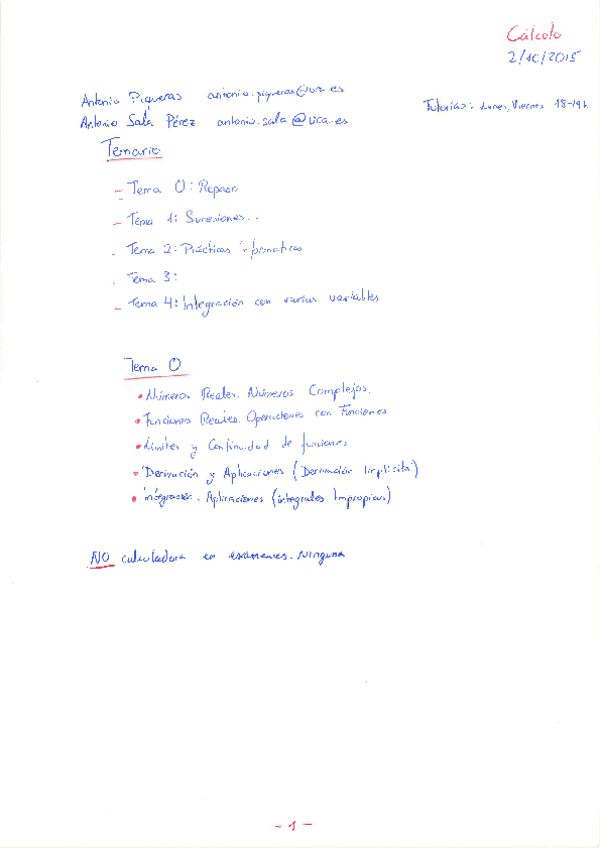 Cálculo
2/10/2015
Antonio Piqueras antonio.piqueras@uca.es
Tutorías: Lunes, Viernes 18-19h
Antonio Sala Pérez antonio.sala@uca.es
Temario
- Tema 0: Repaso
- Tema 1: Sucesiones...
- Tema 2: Prácticas informáticas
- Tema 3:
- Tema 4: Integración con varias variables
Tema 0
• Números Reales. Números Complejos.
• Funciones Reales. Operaciones con Funciones
• Límites y Continuidad de funciones
• Derivación y Aplicaciones (Derivación Implícita)
• Integración. Aplicaciones (integrales Impropias)
NO calculadora en exámenes. Ninguna
- 1 -